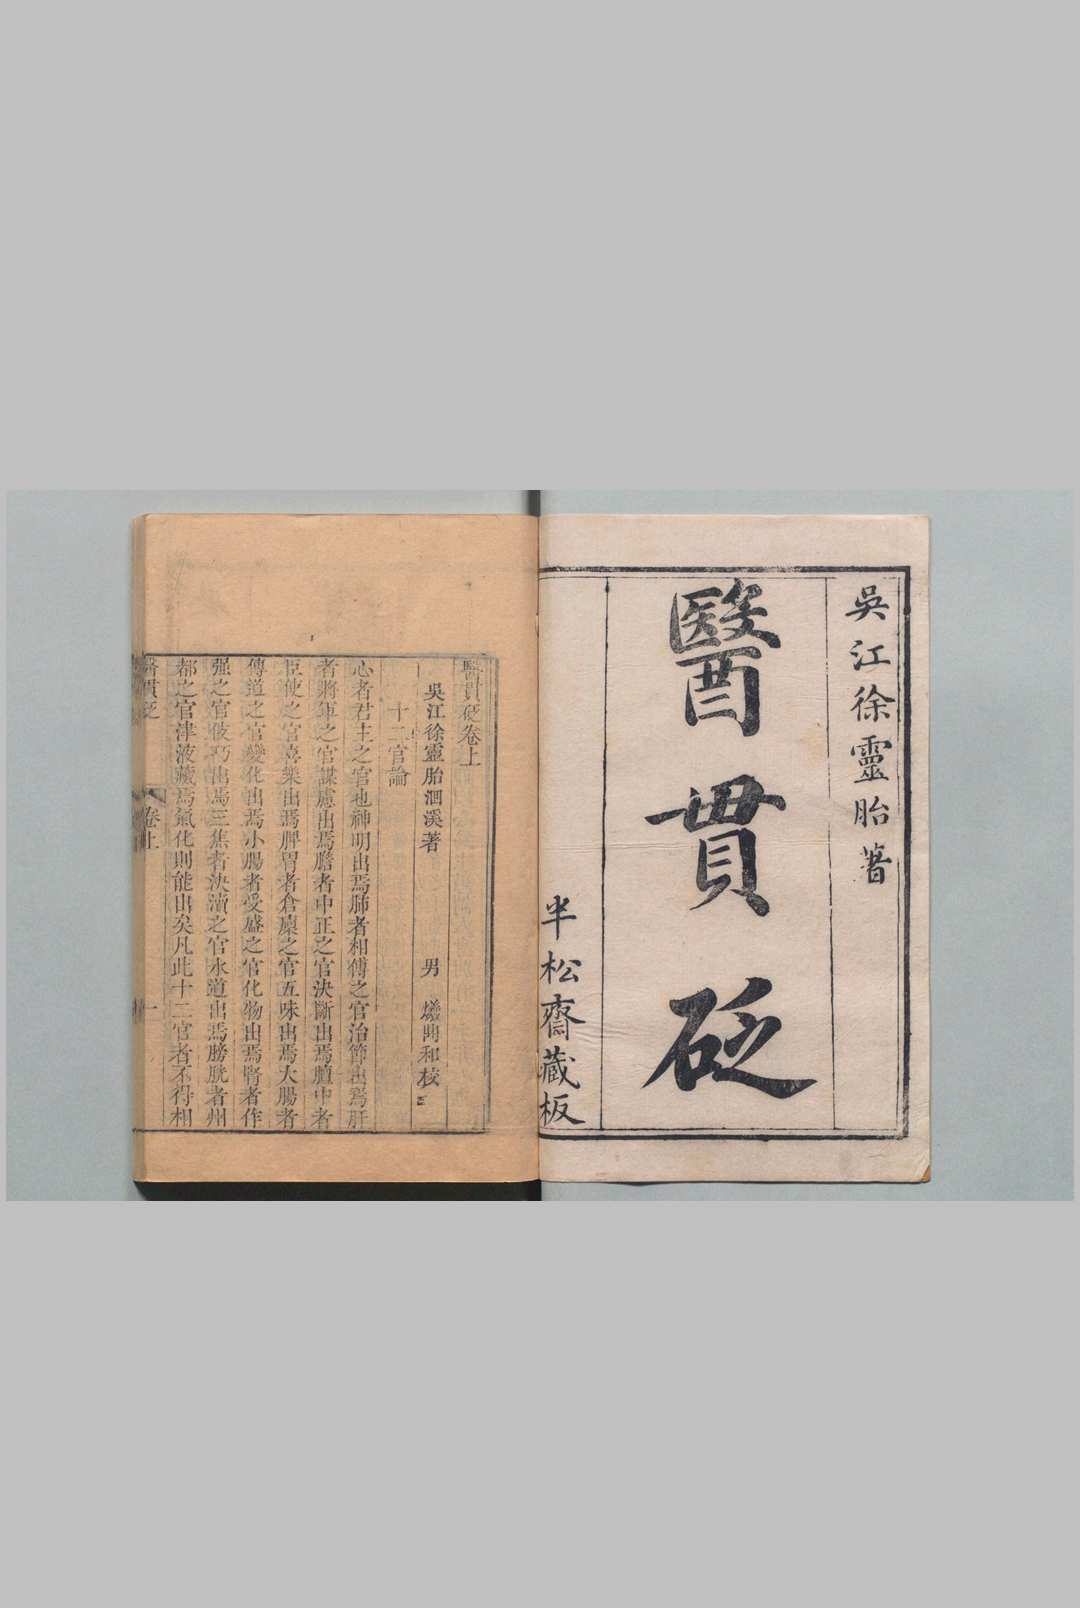 吳江徐靈胎著
醫貫砭
半松齋藏板
醫貫砭卷上
吳江徐靈胎洄溪著 男 爔鼎和校
十二官論
心者君主之官也神明出焉肺者相傅之官治節出焉肝
者將軍之官謀慮出焉膽者中正之官決斷出焉膻中者
臣使之官喜樂出焉脾胃者倉廩之官五味出焉大腸者
傳道之官變化出焉小腸者受盛之官化物出焉腎者作
强之官伎巧出焉三焦者決瀆之官水道出焉膀胱者州
都之官津液藏焉氣化則能出矣凡此十二官者不得相
醫貫砭 卷上 一